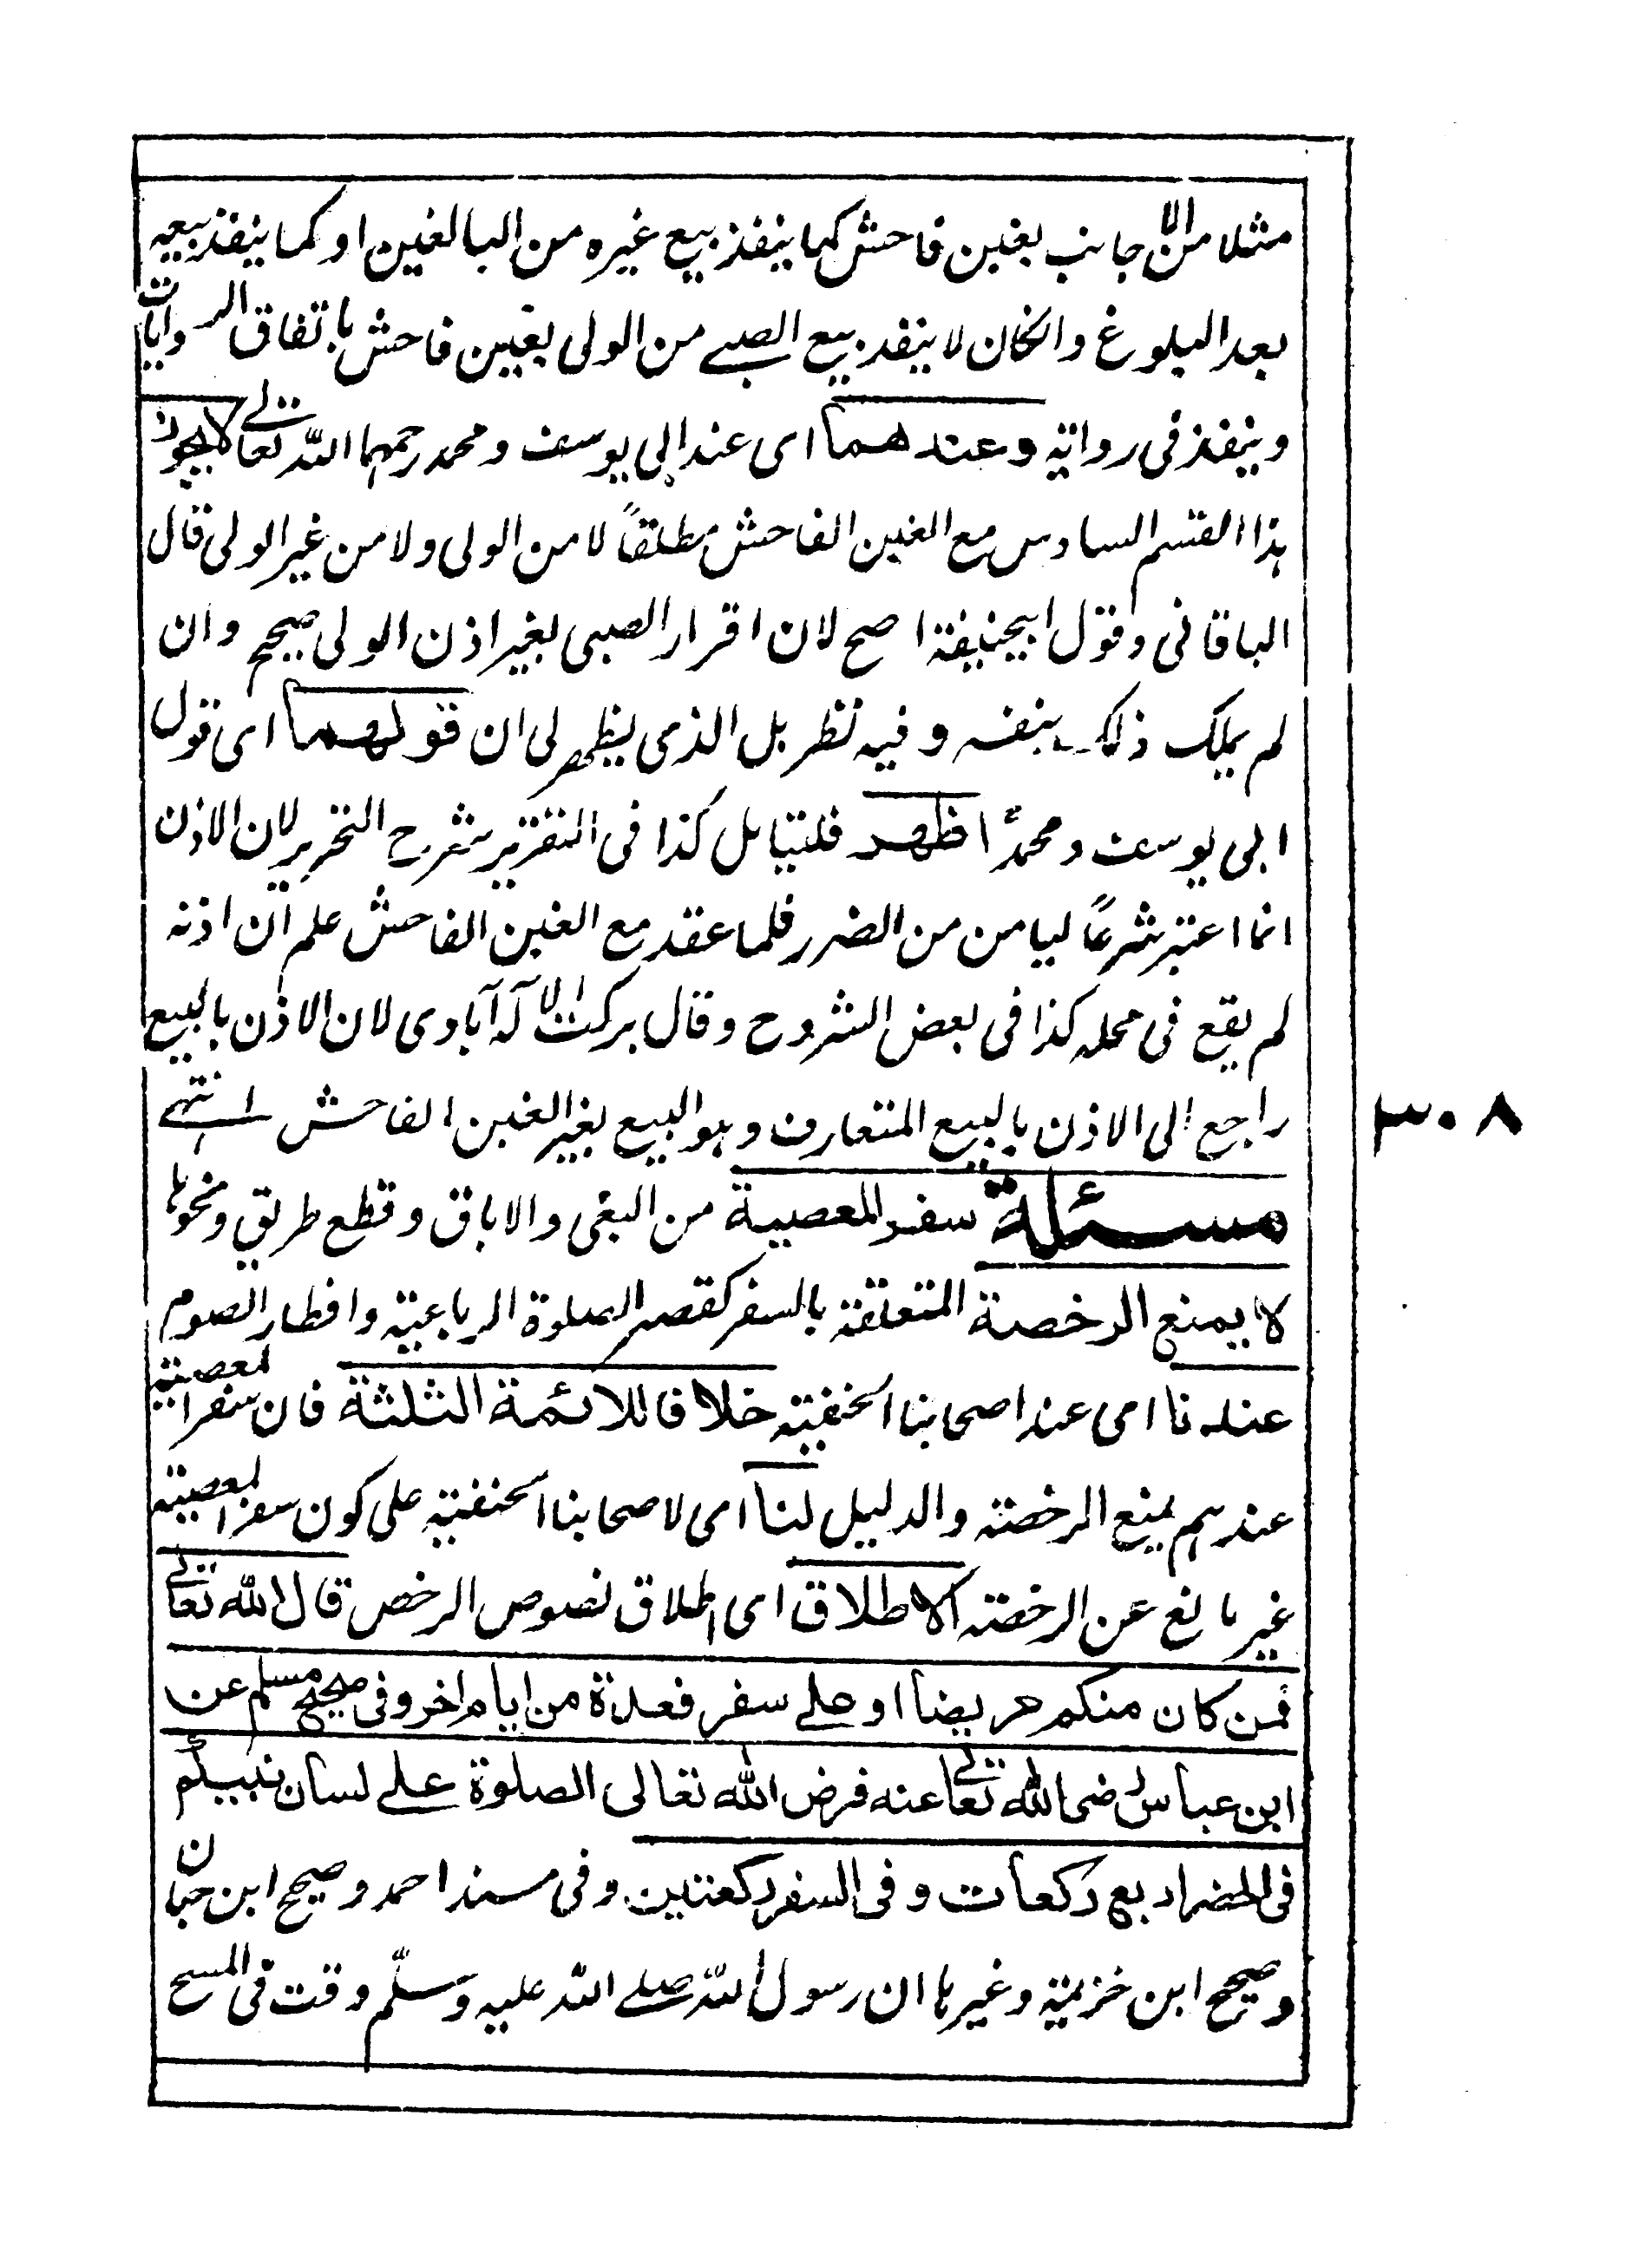 مثلا من الاجانب بغبن فاحش كما ينفذ بيع غيره من البالغين او كما ينفذ بيعه
بعد البلوغ وانكان لا ينفذ بيع الصبے من الولى بغبن فاحش باتفاق الروايات
وينفذ فى رواية وعندهما اى عند ابى يوسف ومحمد رحمهما اللہ تعالے لا يجوز
ہذا القسم السادس مع الغبن الفاحش مطلقاً لا من الولى ولا من غير الولى قال
الباقانى وقول ابيحنيفة اصح لان اقرار الصبى بغير اذن الولى صحيح وان
لم يملك ذلك بنفسہ وفيہ نظر بل الذى يظهر لى ان قولهما اى قول
ابى يوسف ومحمدؒ اظهر فليتامل كذا فى التقرير شرح التحرير لان الاذن
انما اعتبر شرعاً ليامن من الضرر فلما عقد مع الغبن الفاحش علم ان اذنہ
لم يقع فى محلہ كذا فى بعض الشروح وقال بركت الالہ آبادى لان الاذن بالبيع
راجع الى الاذن بالبيع المتعارف وہو البيع بغير الغبن الفاحش انتہے
مسئلة سفر المعصية من البغى والاباق وقطع طريق ونحوہا
لا يمنع الرخصة المتعلقة بالسفر كقصر الصلوة الرباعية وافطار الصوم
عندنا اى عند اصحابنا الحنفية خلافا للائمة الثلثة فان سفر المعصية
عندہم يمنع الرخصة والدليل لنا اى لاصحابنا الحنفية على كون سفر المعصية
غير مانع عن الرخصة الاطلاق اى اطلاق نصوص الرخص قال الله تعالے
فمن كان منكم مريضا او علے سفر فعدة من ايام اخر وفى صحيح مسلم عن
ابن عباس رضى الله تعالے عنه فرض الله تعالى الصلوة علے لسان نبيكم
فى الحضر اربع ركعات وفى السفر ركعتين وفى مسند احمد وصحيح ابن حبان
وصحيح ابن خزيمة وغيرہا ان رسول اللہ صلے اللہ عليہ وسلّم وقت فى المسح
٣٠٨